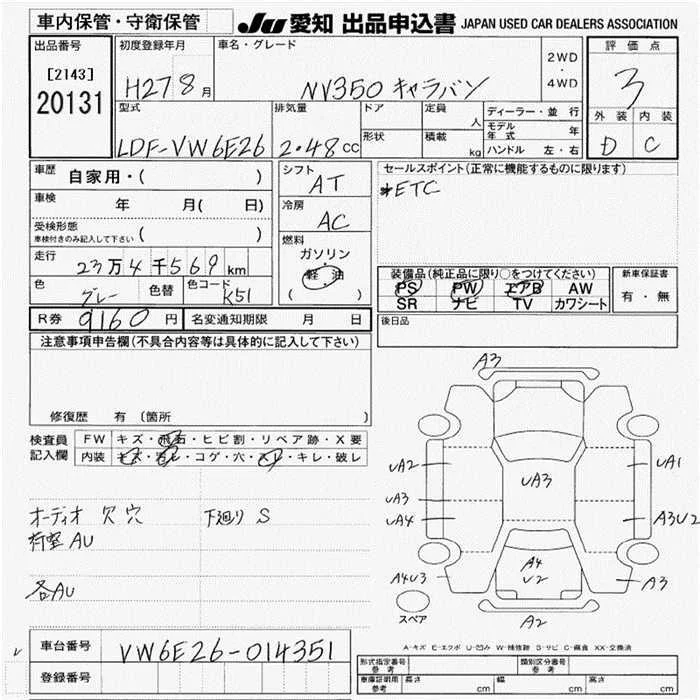 車内保管・守衛保管
JU 愛知 出品申込書 JAPAN USED CAR DEALERS ASSOCIATION
出品番号
[2143]
20131
初度登録年月
H27 8月
車名・グレード
NV350 キャラバン
2WD
・
4WD
評価点
3
外装 内装
D C
型式
LDF-VW6E26
排気量
2.48cc
ドア
形状
定員 人
積載 kg
ディーラー・並行
モデル年式 年
ハンドル 左・右
車歴 自家用・( )
車検 年 月( 日)
受検形態
車検付きのみ記入して下さい ( )
走行
23万4千569km
色 グレー 色替 色コード K51
シフト
AT
冷房
AC
燃料
ガソリン
軽油
( )
セールスポイント(正常に機能するものに限ります)
*ETC
装備品(純正品に限り○をつけてください)
PS PW エアB AW
SR ナビ TV カワシート
新車保証書
有・無
R券 9160円 名変通知期限 月 日
後日品
注意事項申告欄(不具合内容等は具体的に記入して下さい)
修復歴 有 (箇所 )
検査員記入欄
FW キズ・飛石・ヒビ割・リペア跡・X要
内装 キズ・汚レ・コゲ・穴・スレ・キレ・破レ
オーディオ 欠 穴 下廻り S
荷室 AU
各AU
A3
UA2 UA1
UA3
UA3
UA4 A3U2
A4
U2
A4U3 A3
スペア
A2
A-キズ E-エクボ U-凹み W-補修跡 S-サビ C-腐食 XX-交換済
車台番号 VW6E26-014351
登録番号
形式指定番号 参考 類別区分番号 参考
車庫証明用 参考 長さ cm 幅 cm 高さ cm